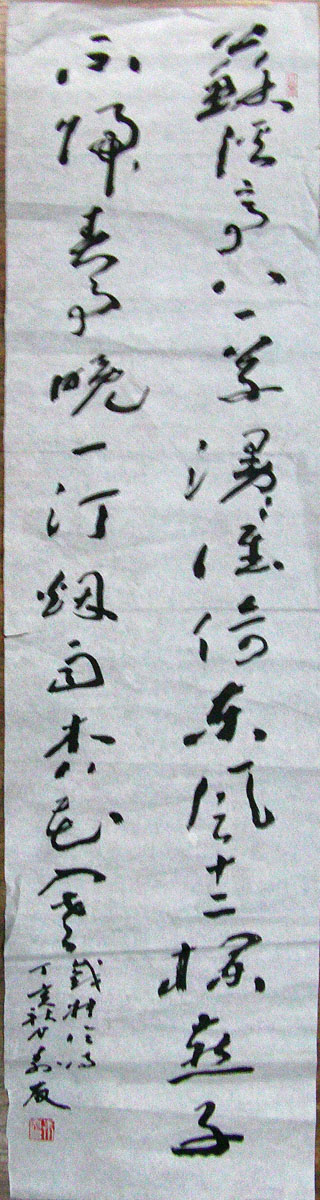 蘇溪亭上草漫々誰倚東風十二欄燕子
不歸春事晚一汀烟雨杏花寒
戴叔倫詩
丁亥秋